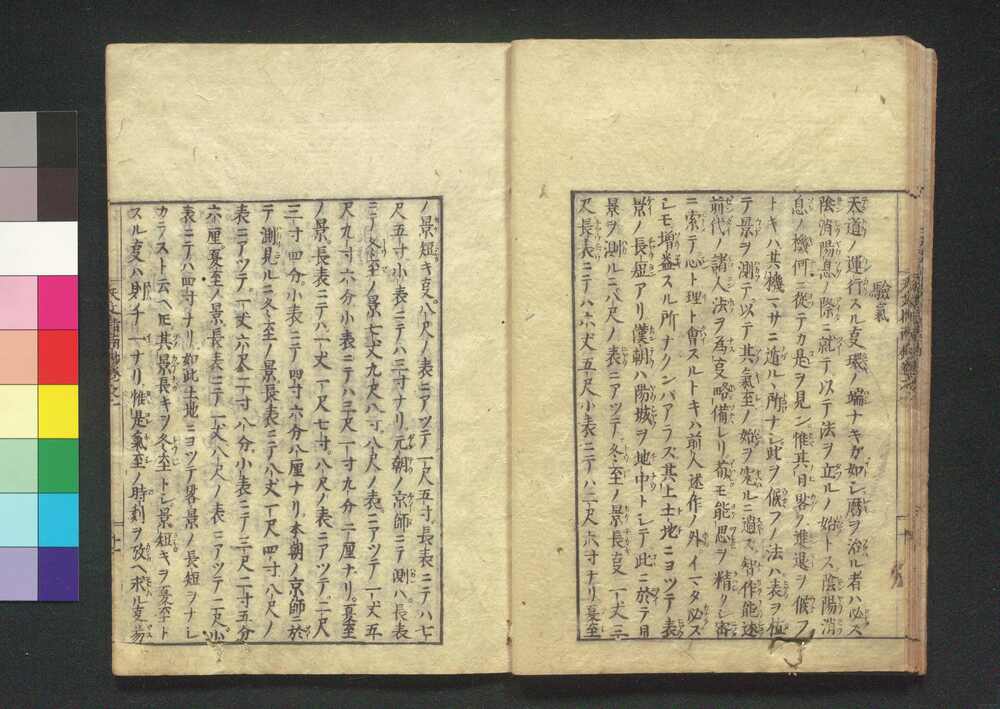 驗氣
天道ノ運行スル㕝環ノ端ナキガ如シ暦ヲ治ル者ハ必ス
陰消陽息ノ際ニ就テ以テ法ヲ立ルノ始トス陰陽消
息ノ機何ニ從テカ是ヲ見ン惟其日晷ノ進退ヲ候フ
トキハ其機マサニ遁ルヽ所ナシ此ヲ候フノ法ハ表ヲ植
テ景ヲ測テ以テ其氣至ノ始ヲ究ルニ過ス智作能述
前代ノ諸人法ヲ為㕝略備レリ茍モ能思ヲ精クシ審
ニ索テ心ト理ト會スルトキハ前人述作ノ外イマタ必ス
シモ增益スル所ナクンバアラス其上土地ニヨツテ表
景ノ長短アリ漢朝ハ陽城ヲ地中トシテ此ニ於テ日
景ヲ測ルニ八尺ノ表ニアツテ冬至ノ景長㕝一丈三
尺長表ニテハ六丈五尺小表ニテハ二尺六寸ナリ夏至
ノ景短キ㕝八尺ノ表ニアツテ一尺五寸長表ニテハ七
尺五寸小表ニテハ三寸ナリ元朝ノ京師ニテ測ハ長表
ニテ冬至ノ景七丈九尺八寸八尺ノ表ニアツテ一丈五
尺九寸六分小表ニテハ三尺一寸九分二厘ナリ夏至
ノ景長表ニテハ一丈一尺七寸八尺ノ表ニアツテ二尺
三寸四分小表ニテ四寸六分八厘ナリ本朝ノ京師ニ於
テ測見ルニ冬至ノ景長表ニテ八丈一尺四寸八尺ノ
表ニアツテ一丈六尺二寸八分小表ニテ三尺二寸五分
六厘夏至ノ景長表ニテ一丈八尺ノ表ニアツテ二尺小
表ニテハ四寸ナリ如此土地ニヨツテ晷景ノ長短ヲナシ
カラスト云ヘ𪜈其景長キヲ冬至トシ景短キヲ夏至ト
スル㕝ハ則チ一ナリ惟是氣至ノ時刻ヲ攷ヘ求ル㕝易